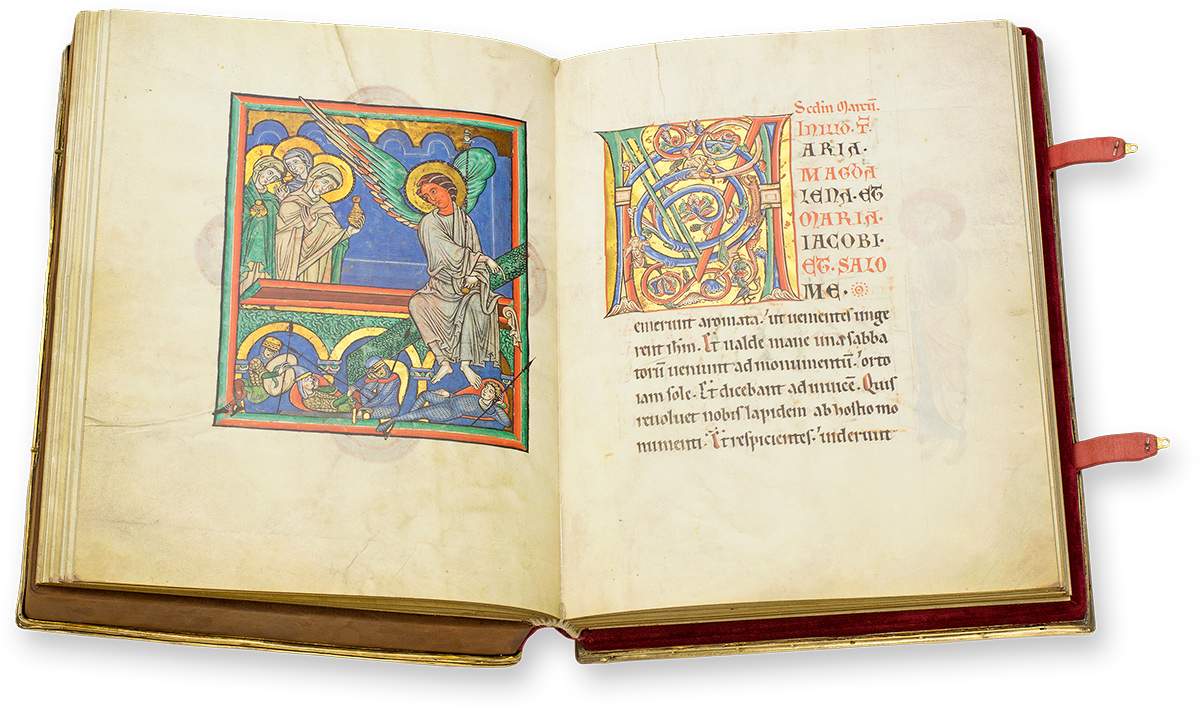 Scdm Marcū.
IN ILLO. T̄.
MARIA.
MAGDA
LENA. ET
MARIA.
IACOBI.
ET. SALO
ME.
emerunt aromata. ut uenientes unge
rent ihm. Et ualde mane una sabba
torū ueniunt ad monumentū. orto
iam sole. Et dicebant ad inuicē. Quis
reuoluet nobis lapidem ab hostio mo
numenti. Et respicientes. uiderunt